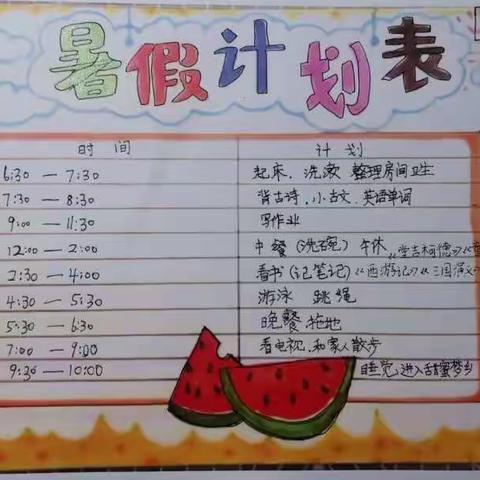 暑假计划表
时间 计划
6:30 — 7:30 起床、洗漱 整理房间卫生
7:30 — 8:30 背古诗、小古文、英语单词
9:00 — 11:30 写作业
12:00 — 2:00 中餐(洗碗) 午休
2:30 — 4:00 看书(记笔记)《堂吉柯德》《西游记》《三国演义
4:30 — 5:30 游泳 跳绳
5:30 — 6:30 晚餐、拖地
7:00 — 9:00 看电视、和家人散步
9:30 — 10:00 睡觉,进入甜蜜梦乡